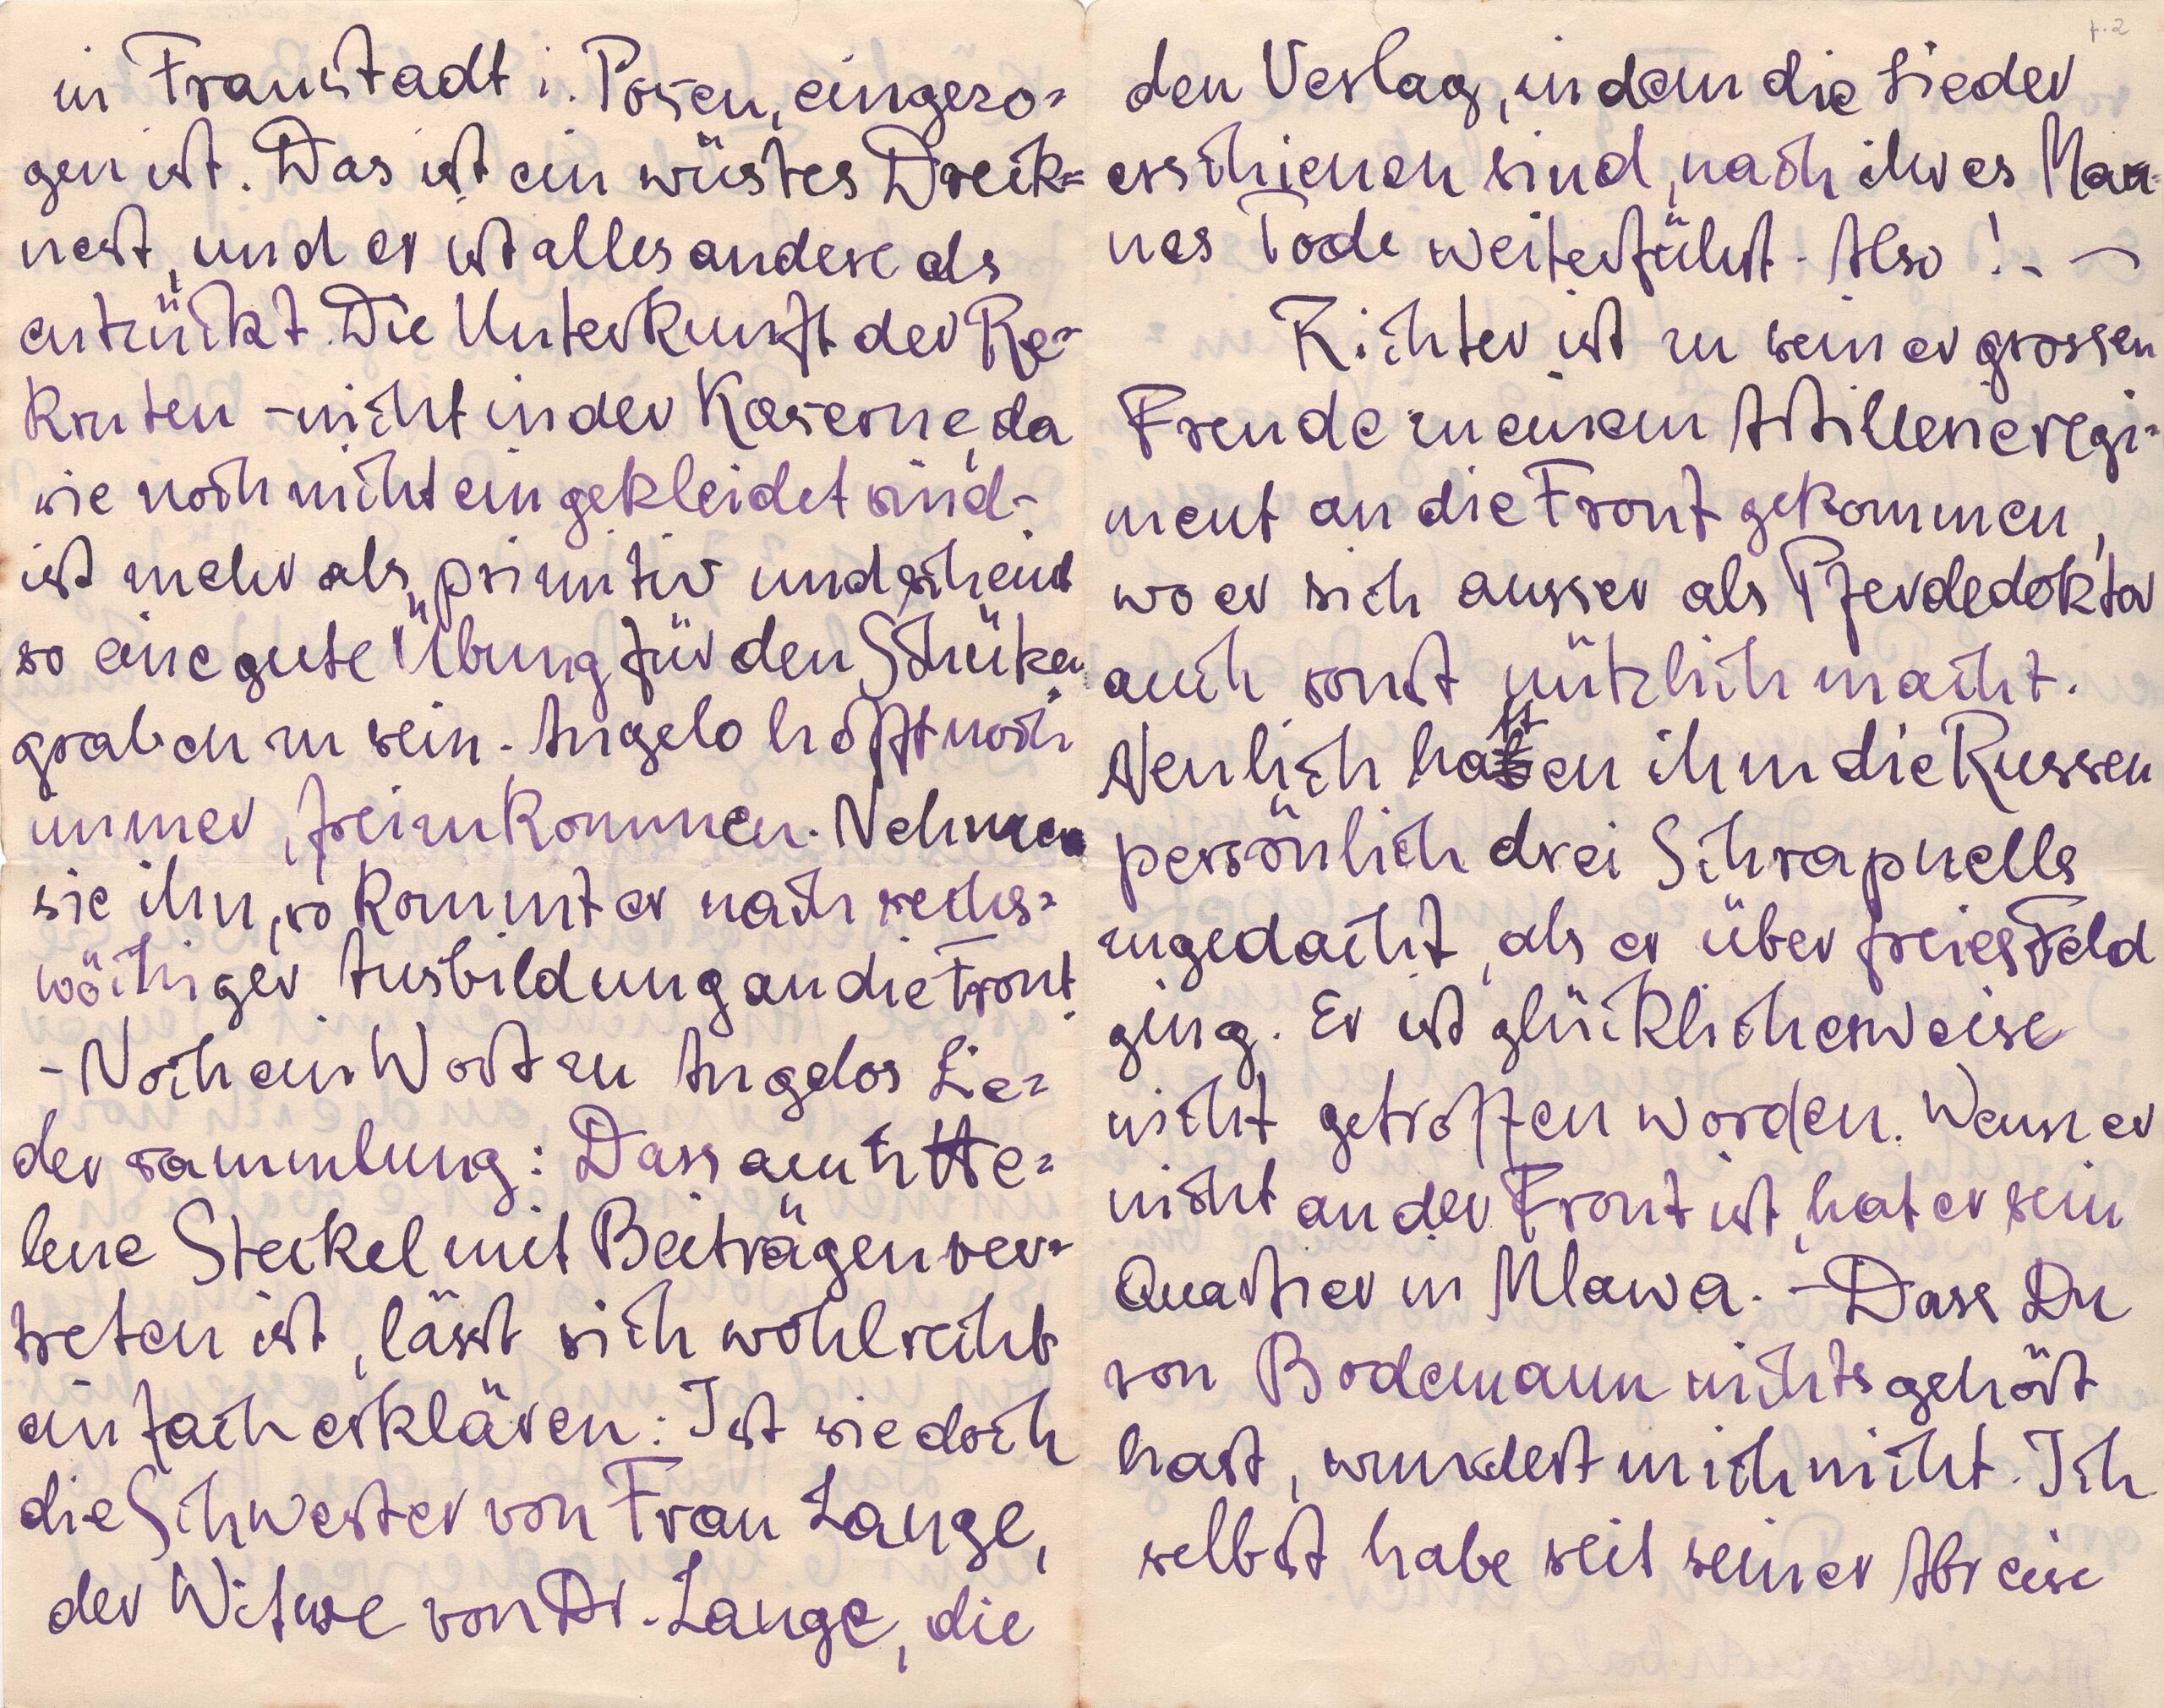 in Fraustadt i. Posen, eingezo=
gen ist. Das ist ein wüstes Dreck=
nest, und er ist alles andere als
entzückt. Die Unterkunft der Re=
kruten - nicht in der Kaserne, da
sie noch nicht eingekleidet sind -
ist mehr als primitiv und scheint
so eine gute Übung für den Schützen
graben zu sein. Angelo hofft noch
immer, freizukommen. Nehmen
sie ihn, so kommt er nach sechs=
wöchiger Ausbildung an die Front.
- Noch ein Wort zu Angelos Lie=
dersammlung: Dass auch He=
lene Steckel mit Beiträgen ver=
treten ist, lässt sich wohl recht
einfach erklären: Ist sie doch
die Schwester von Frau Lange,
der Witwe von Dr. Lange, die
p. 2
den Verlag, in dem die Lieder
erschienen sind, nach ihres Man=
nes Tode weiterführt. Also! -
Richter ist zu seiner grossen
Freude zu einem Artillerieregi=
ment an die Front gekommen,
wo er sich ausser als Pferdedoktor
auch sonst nützlich macht.
Neulich hatten ihm die Russen
persönlich drei Schrapnells
zugedacht, als er über freies Feld
ging. Er ist glücklicherweise
nicht getroffen worden. Wenn er
nicht an der Front ist, hat er sein
Quartier in Mlawa. - Dass Du
von Bodemann nichts gehört
hast, wundert mich nicht. Ich
selbst habe seit seiner Abreise